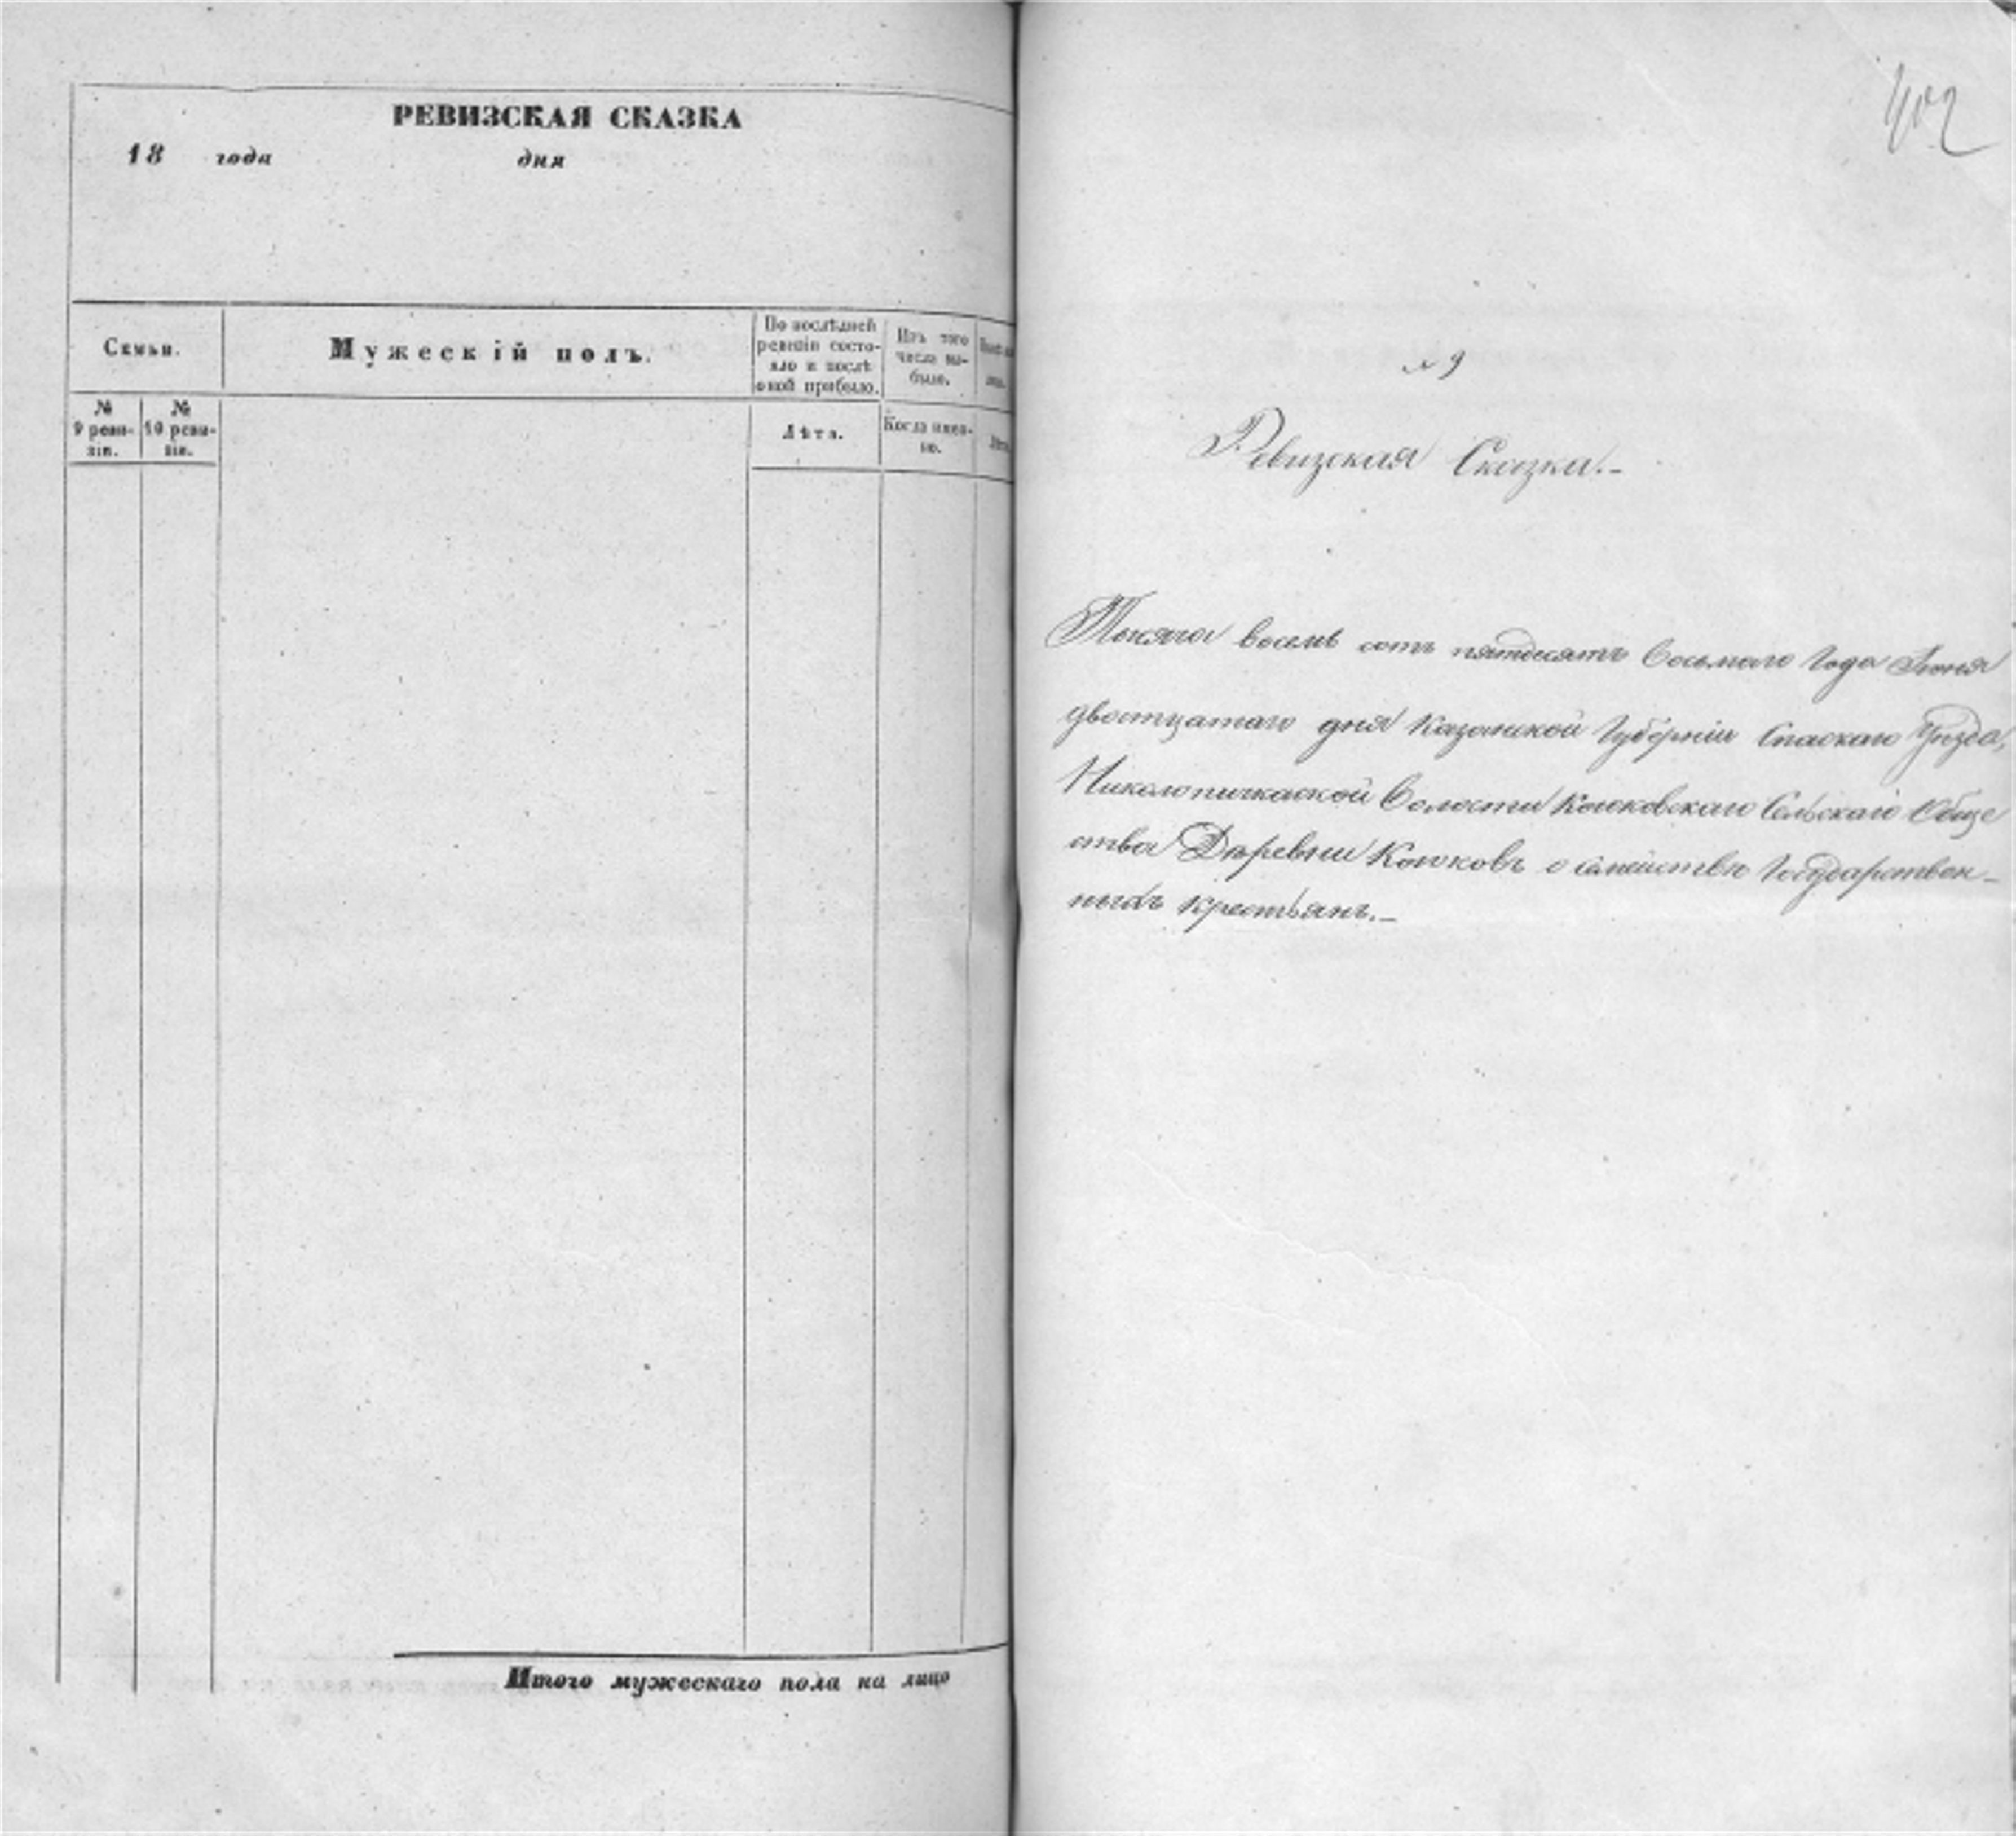 РЕВИЗСКАЯ СКАЗКА
18 года дня
Семьи.
Мужескій полъ.
По послѣдней
ревизіи состо-
яло и послѣ
оной прибыло.
Изъ того
числа вы-
было.
№
9 реви-
зіи.
№
10 реви-
зіи.
Лѣта.
Когда имен-
но.
Итого мужескаго пола на лицо
402
№ 9
Ревизская Сказка.-
Тысяча восемь сотъ пятдесятъ Восьмаго Года Іюня
двотцатаго дня Казанской Губерніи Спаскаго Уѣзда,
Николопичкаской Волости Коюковскаго Сельскаго Обще
ства Деревни Коюковъ о семействѣ Государствен-
ныхъ крестьянъ.-